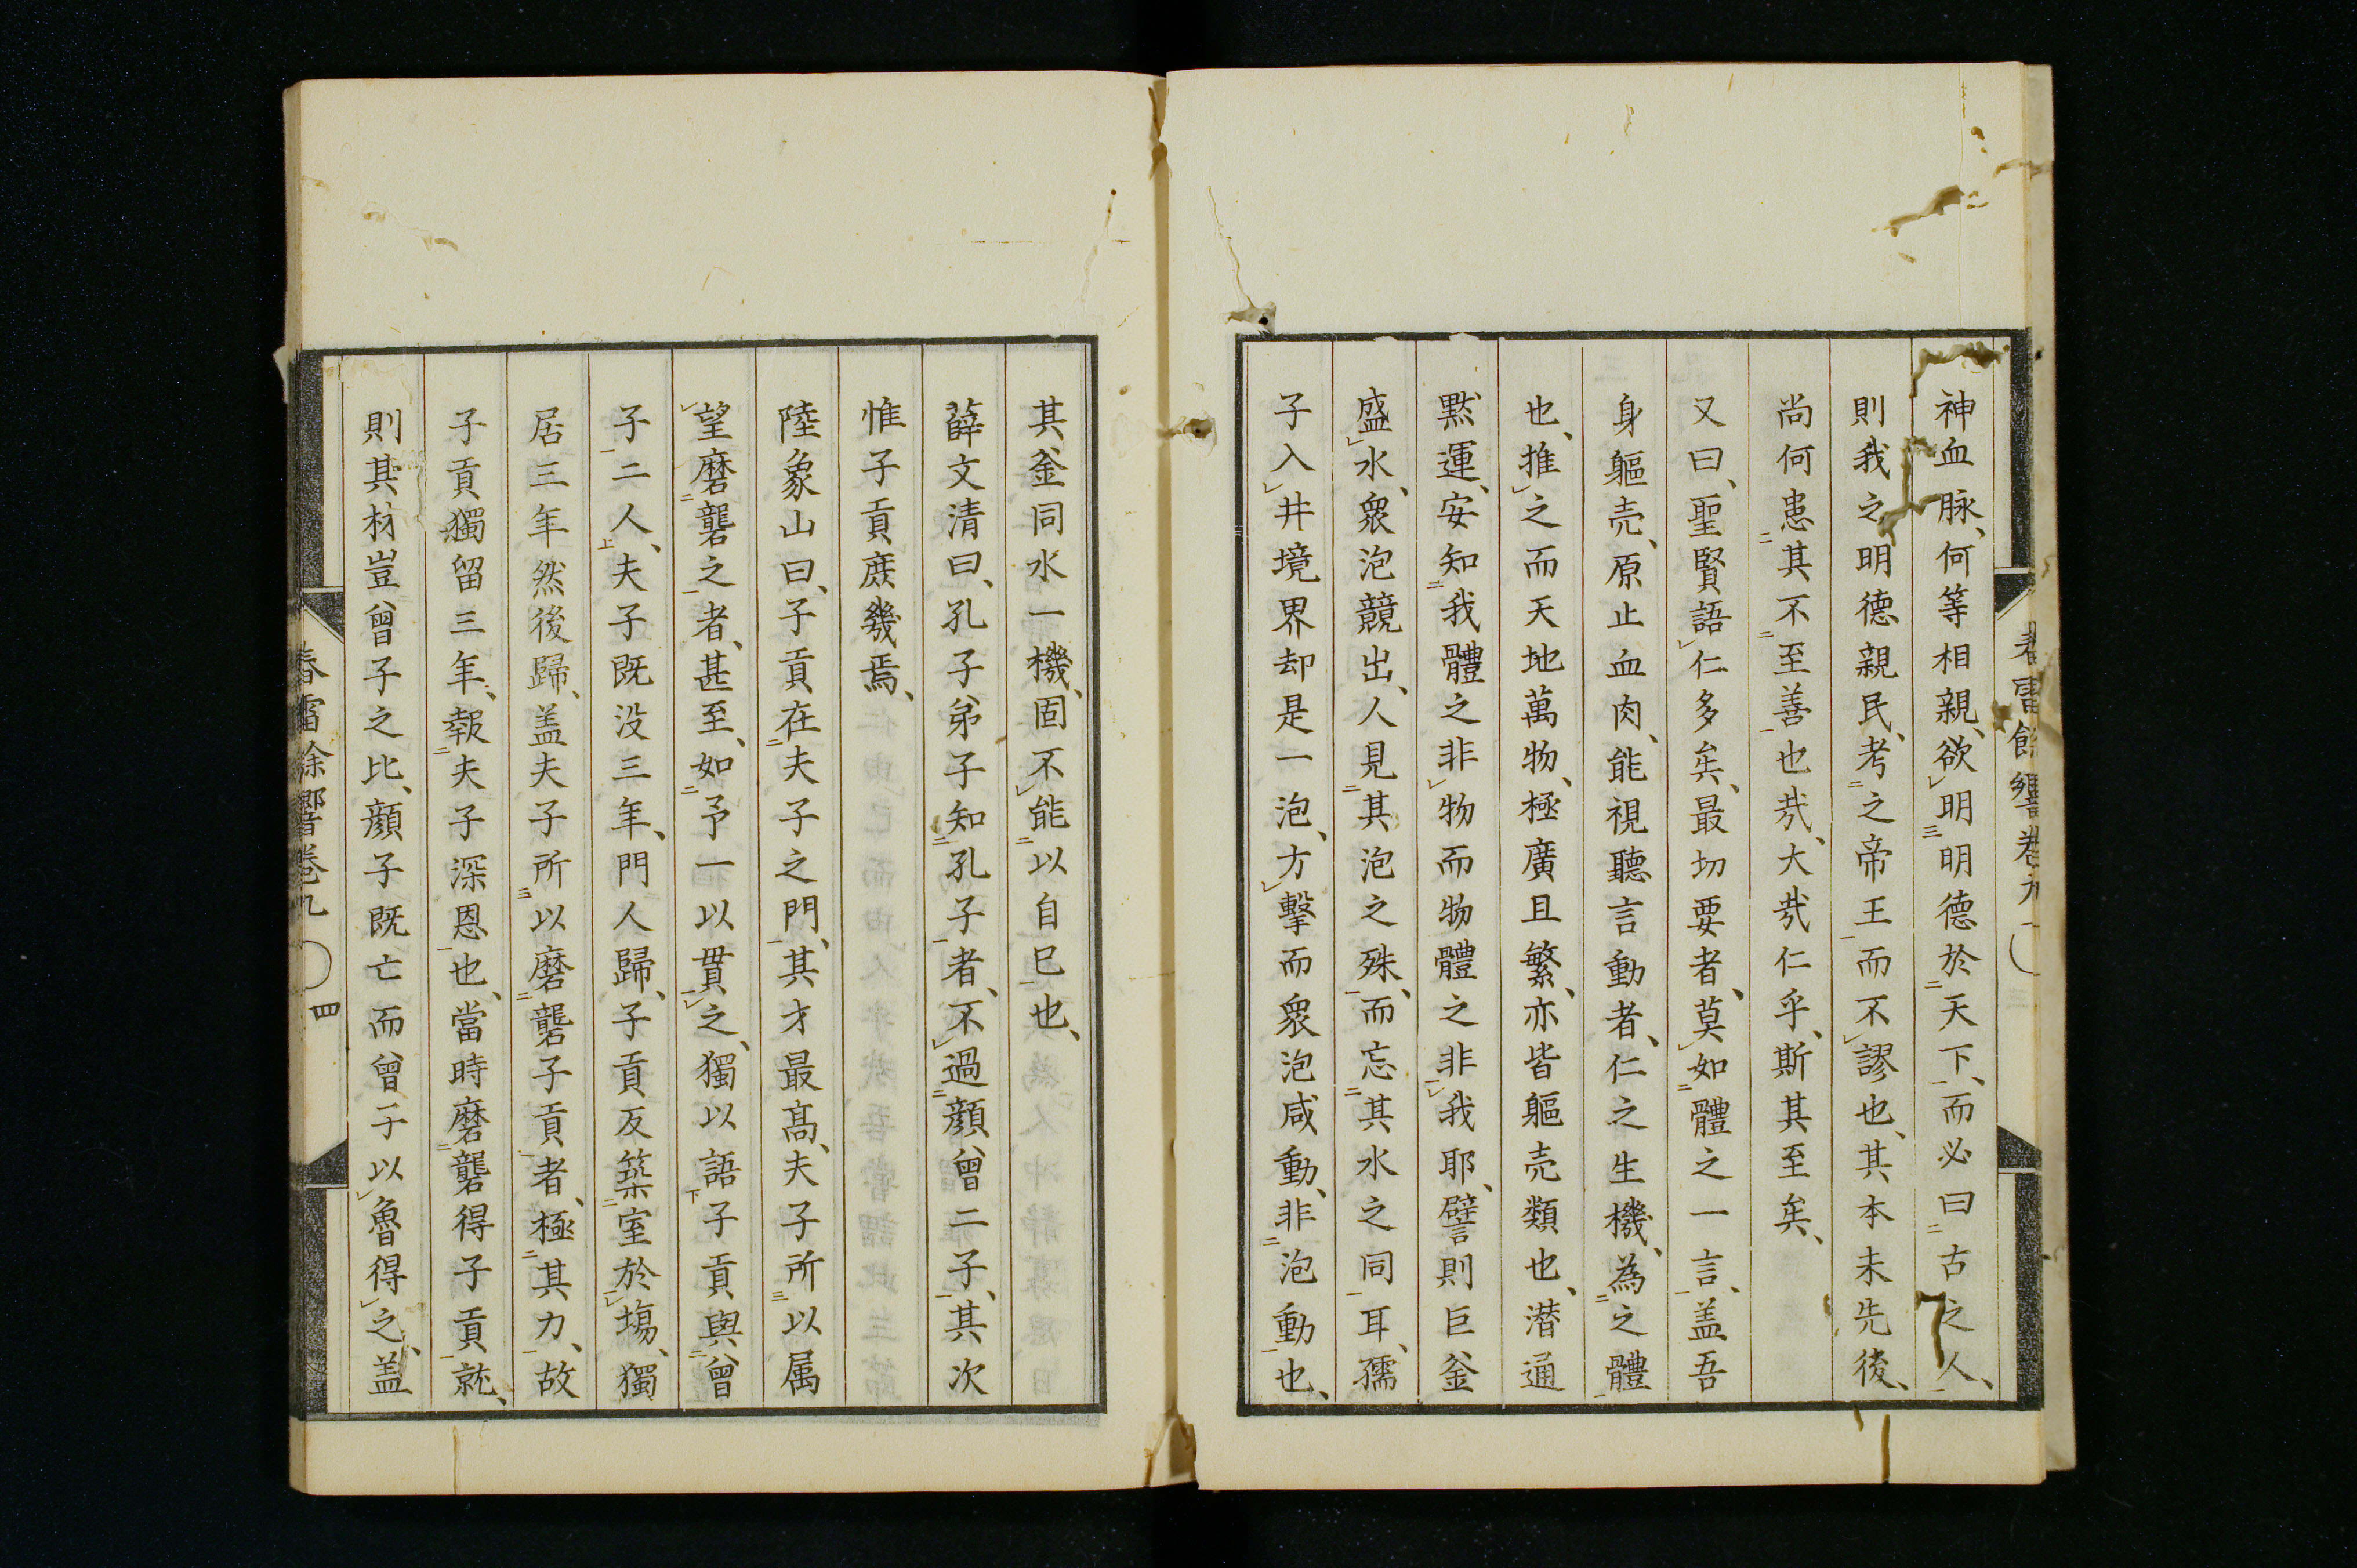 神血脉、何等相親、欲明明德於天下、而必曰古之人、
則我之明德親民、考之帝王而不謬也、其本末先後、
尚何患其不至善也㢤、大㢤仁乎、斯其至矣、
又曰、聖賢語仁多矣、最切要者、莫如體之一言、盖吾
身軀壳、原止血肉、能視聽言動者、仁之生機、為之體
也、推之而天地萬物、極廣且繁、亦皆軀壳類也、潜通
黙運、安知我體之非物而物體之非我耶、譬則巨釜
盛水、衆泡競出、人見其泡之殊、而忘其水之同耳、孺
子入井境界却是一泡、方撃而衆泡咸動、非泡動也、
其釜同水一機、固不能以自已也、
薛文清曰、孔子弟子知孔子者、不過顔曾二子、其次
惟子貢庶幾焉、
陸象山曰、子貢在夫子之門、其才最高、夫子所以属
望磨礱之者、甚至、如予一以貫之、獨以語子貢與曾
子二人、夫子既没三年、門人歸、子貢反築室於塲、獨
居三年然後歸、盖夫子所以磨礱子貢者、極其力、故
子貢獨留三年、報夫子深恩也、當時磨礱得子貢就、
則其材豈曾子之比、顔子既亡而曾子以魯得之、盖
春雷餘響卷九 四